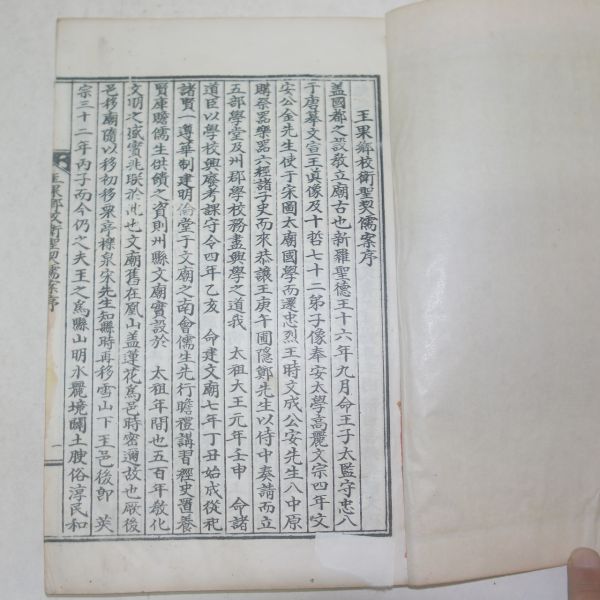 玉果鄕校衛聖契儒案序
盖國都之設教立廟古也新羅聖德王十六年九月命王子太監守忠入
于唐摹文宣王眞像及十哲七十二弟子像奉安太學高麗文宗四年文
安公金先生使于宋圖太廟國學而還忠烈王時文成公安先生入中原
購祭器樂器六經諸子史而來恭讓王庚午圃隱鄭先生以侍中奏請而立
五部學堂及州郡學校務盡興學之道我 太祖大王元年壬申 命諸
道臣以學校興廢考課守令四年乙亥 命建文廟七年丁丑始成從祀
諸賢一遵華制建明倫堂于文廟之南會儒生先行瞻禮講習經史置養
賢庫贍儒生供饋之資則州縣文廟實設於 太祖年間也五百年敎化
文明之盛實兆眹於此也文廟舊在凰山盖蓮花爲邑時密邇故也厥後
邑移廟隨以移初移泉亭櫟泉宋先生知縣時再移雪山下王邑後卽 英
宗三十二年丙子而今仍之夫王之爲縣山明水麗境闢土腴俗淳民和
玉果鄕校衛聖契儒案序
一